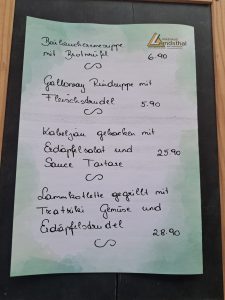 Bärlauchcremesuppe
mit Brotwürfel 6.90
Galloway Rindsuppe mit
Fleischstrudel 5.90
Kabeljau gebacken mit
Erdäpfelsalat und 25.90
Sauce Tartare
Lammkotlette gegrillt mit
Tzatziki Gemüse und
Erdäpfelstrudel
28.90